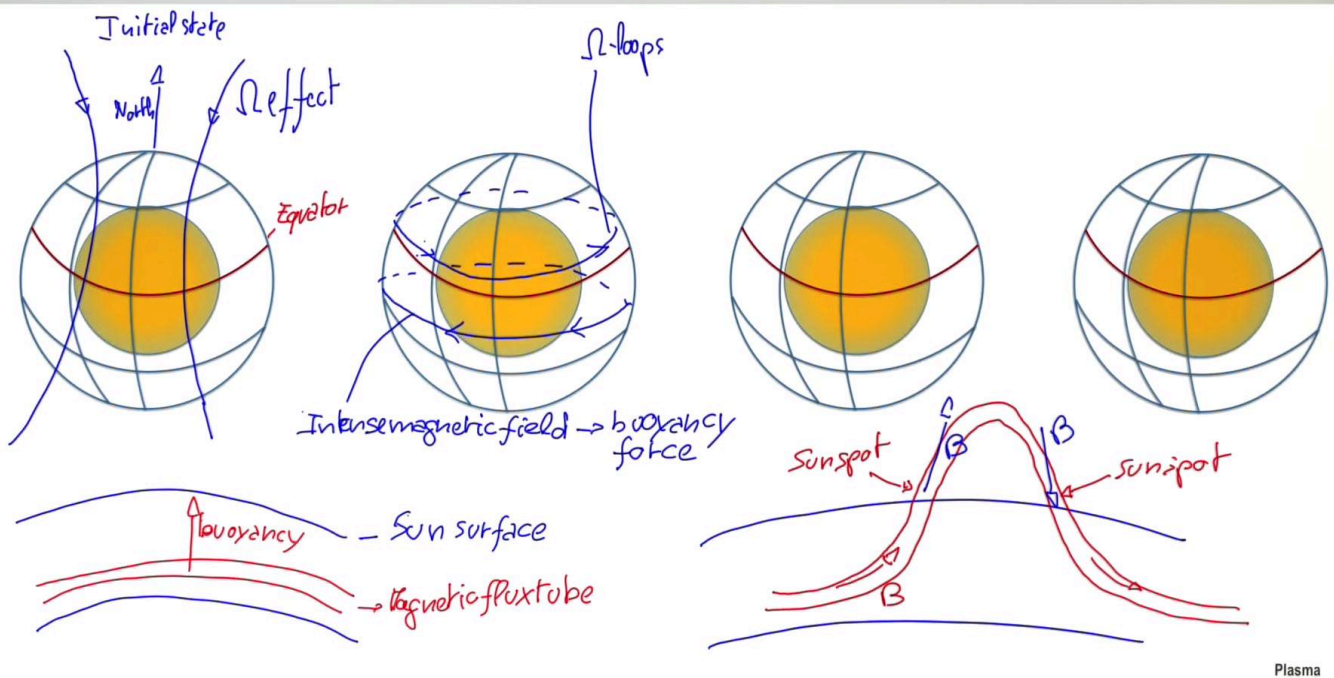 Initial state
North
Ω effect
Equator
Ω-loops
Intense magnetic field → buoyancy
force
buoyancy
– Sun surface
→ Magnetic flux tube
Sunspot
B
B
sunspot
B
Plasma